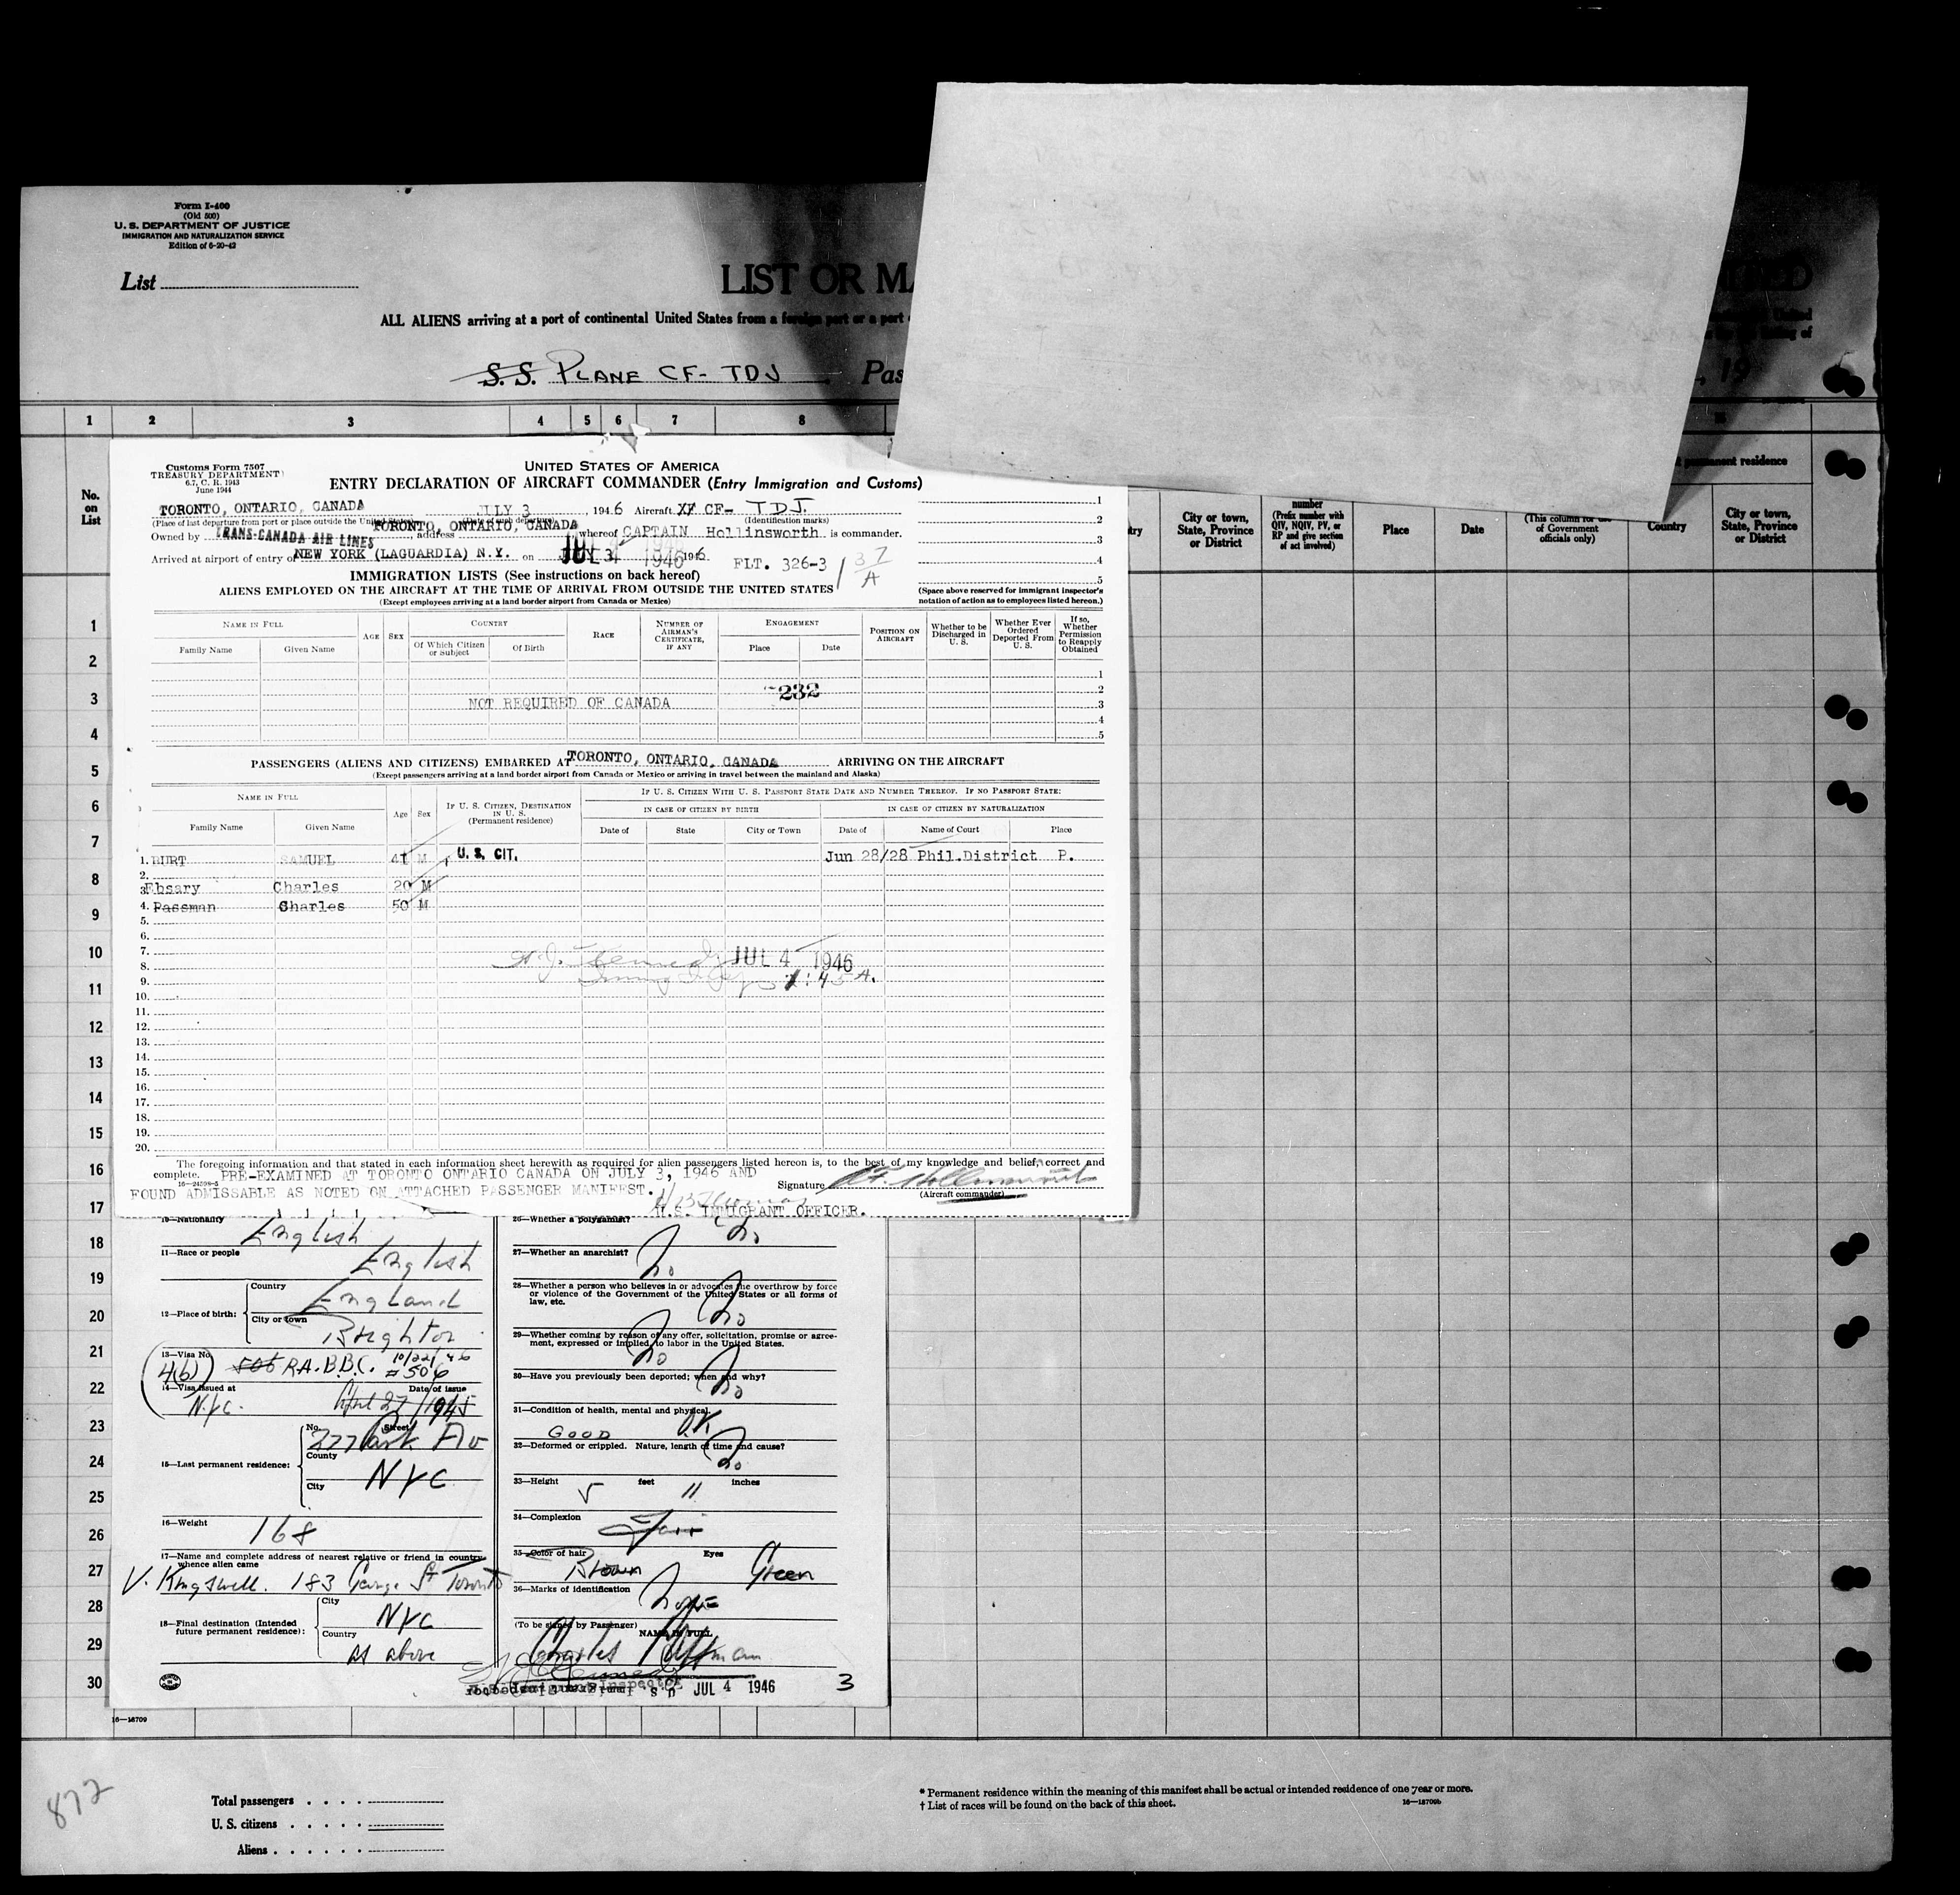 Form I-400
(Old 500)
U. S. DEPARTMENT OF JUSTICE
IMMIGRATION AND NATURALIZATION SERVICE
Edition of 6-20-43
List
LIST OR MA
ALL ALIENS arriving at a port of continental United States from a foreign port or a port
S. S. PLANE CF- TDJ Pas
, 19
1 2 3 4 5 6 7 8
No. on List
permanent residence
City or town, State, Province or District
number (Prefix number with QIV, NQIV, PV, or RP and give section of act involved)
Place
Date
(This column for use of Government officials only)
Country
City or town, State, Province or District
Customs Form 7507
TREASURY DEPARTMENT
6.7, C. R. 1943
June 1944
UNITED STATES OF AMERICA
ENTRY DECLARATION OF AIRCRAFT COMMANDER (Entry Immigration and Customs)
TORONTO, ONTARIO, CANADA JULY 3, 1946 Aircraft CF- TDJ.
(Place of last departure from port or place outside the United States) (Identification marks)
Owned by TRANS-CANADA AIR LINES address TORONTO, ONTARIO, CANADA whereof CAPTAIN Hollinsworth is commander.
Arrived at airport of entry of NEW YORK (LAGUARDIA) N.Y. on JULY 3 1946 JUL 4 1946 FLT. 326-3 / 37 A
1
2
3
4
5
(Space above reserved for immigrant inspector's notation of action as to employees listed hereon.)
IMMIGRATION LISTS (See instructions on back hereof)
ALIENS EMPLOYED ON THE AIRCRAFT AT THE TIME OF ARRIVAL FROM OUTSIDE THE UNITED STATES
(Except employees arriving at a land border airport from Canada or Mexico)
NAME IN FULL
Family Name Given Name
AGE SEX
COUNTRY
Of Which Citizen or Subject Of Birth
RACE
NUMBER OF AIRMAN'S CERTIFICATE, IF ANY
ENGAGEMENT
Place Date
POSITION ON AIRCRAFT
Whether to be Discharged in U. S.
Whether Ever Ordered Deported From U. S.
If so, Whether Permission to Reapply Obtained
1
2
3
4
5
232
NOT REQUIRED OF CANADA
PASSENGERS (ALIENS AND CITIZENS) EMBARKED AT TORONTO, ONTARIO, CANADA ARRIVING ON THE AIRCRAFT
(Except passengers arriving at a land border airport from Canada or Mexico or arriving in travel between the mainland and Alaska)
NAME IN FULL
Family Name Given Name
Age Sex
IF U. S. CITIZEN, DESTINATION IN U. S. (Permanent residence)
IF U. S. CITIZEN WITH U. S. PASSPORT STATE DATE AND NUMBER THEREOF. IF NO PASSPORT STATE:
IN CASE OF CITIZEN BY BIRTH IN CASE OF CITIZEN BY NATURALIZATION
Date of State City or Town Date of Name of Court Place
1. BURT SAMUEL 41 M U. S. CIT. Jun 28/28 Phil.District P.
2.
3. Ebsary Charles 20 M
4. Passman Charles 50 M
5.
6.
7. JUL 4 1946
8.
9. 1:45 A.
10.
11.
12.
13.
14.
15.
16.
17.
18.
19.
20.
The foregoing information and that stated in each information sheet herewith as required for alien passengers listed hereon is, to the best of my knowledge and belief, correct and
complete. PRE-EXAMINED AT TORONTO ONTARIO CANADA ON JULY 3, 1946 AND
FOUND ADMISSABLE AS NOTED ON ATTACHED PASSENGER MANIFEST.
Signature
(Aircraft commander)
U.S. IMMIGRANT OFFICER.
10—Nationality English
11—Race or people English
12—Place of birth: Country England
City or Town Brighton
13—Visa No. 4(b) 506 R.A. B.B.C. 10/22/46 #506
14—Visa issued at NYC. Date of issue April 27/1945
15—Last permanent residence: No. Street 277 Park Av
County
City NYC
16—Weight 168
17—Name and complete address of nearest relative or friend in country whence alien came
V. Kingswell. 183 George St Toronto
18—Final destination (Intended future permanent residence): City NYC
Country as above
26—Whether a polygamist? No
27—Whether an anarchist? No
28—Whether a person who believes in or advocates the overthrow by force or violence of the Government of the United States or all forms of law, etc. No
29—Whether coming by reason of any offer, solicitation, promise or agreement, expressed or implied, to labor in the United States. No
30—Have you previously been deported; when and why? No
31—Condition of health, mental and physical. GOOD OK
32—Deformed or crippled. Nature, length of time and cause? No
33—Height 5 feet 11 inches
34—Complexion Fair
35—Color of hair Brown Eyes Green
36—Marks of identification None
(To be signed by Passenger) NAME IN FULL
Charles Passman
JUL 4 1946
3
1
2
3
4
5
6
7
8
9
10
11
12
13
14
15
16
17
18
19
20
21
22
23
24
25
26
27
28
29
30
16—18709
872
Total passengers
U. S. citizens
Aliens
* Permanent residence within the meaning of this manifest shall be actual or intended residence of one year or more.
† List of races will be found on the back of this sheet.
16—18709b